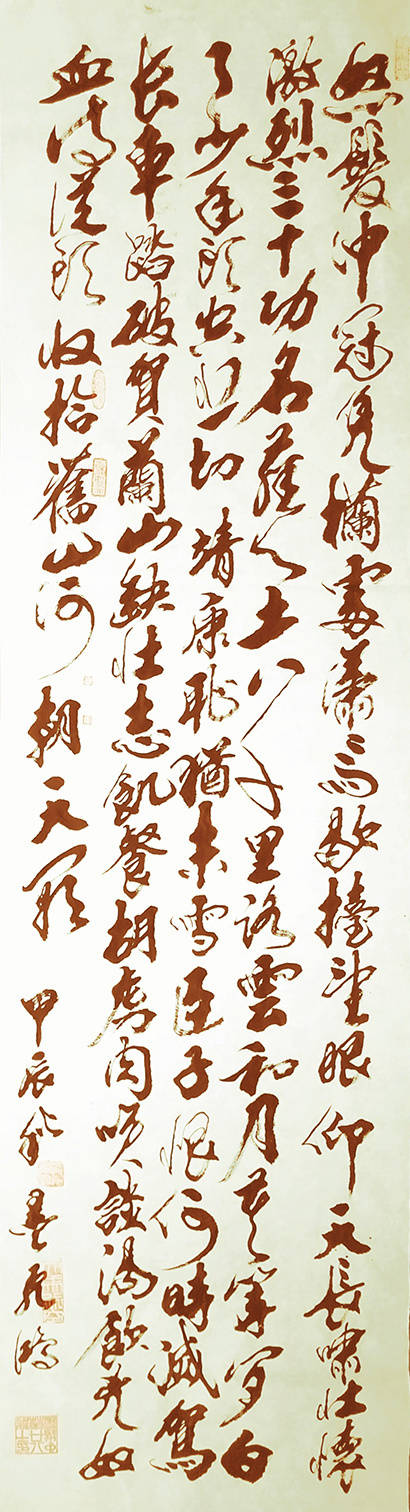 怒髮冲冠凭欄處瀟〻雨歇擡望眼仰天長嘯壯懷
激烈三十功名塵与土八千里路雲和月莫等闲白
了少年頭空悲切靖康恥猶未雪臣子恨何時滅駕
長車踏破賀蘭山缺壯志飢餐胡虜肉笑談渴飲匈奴
血待從頭收拾舊山河朝天闕 甲辰秋